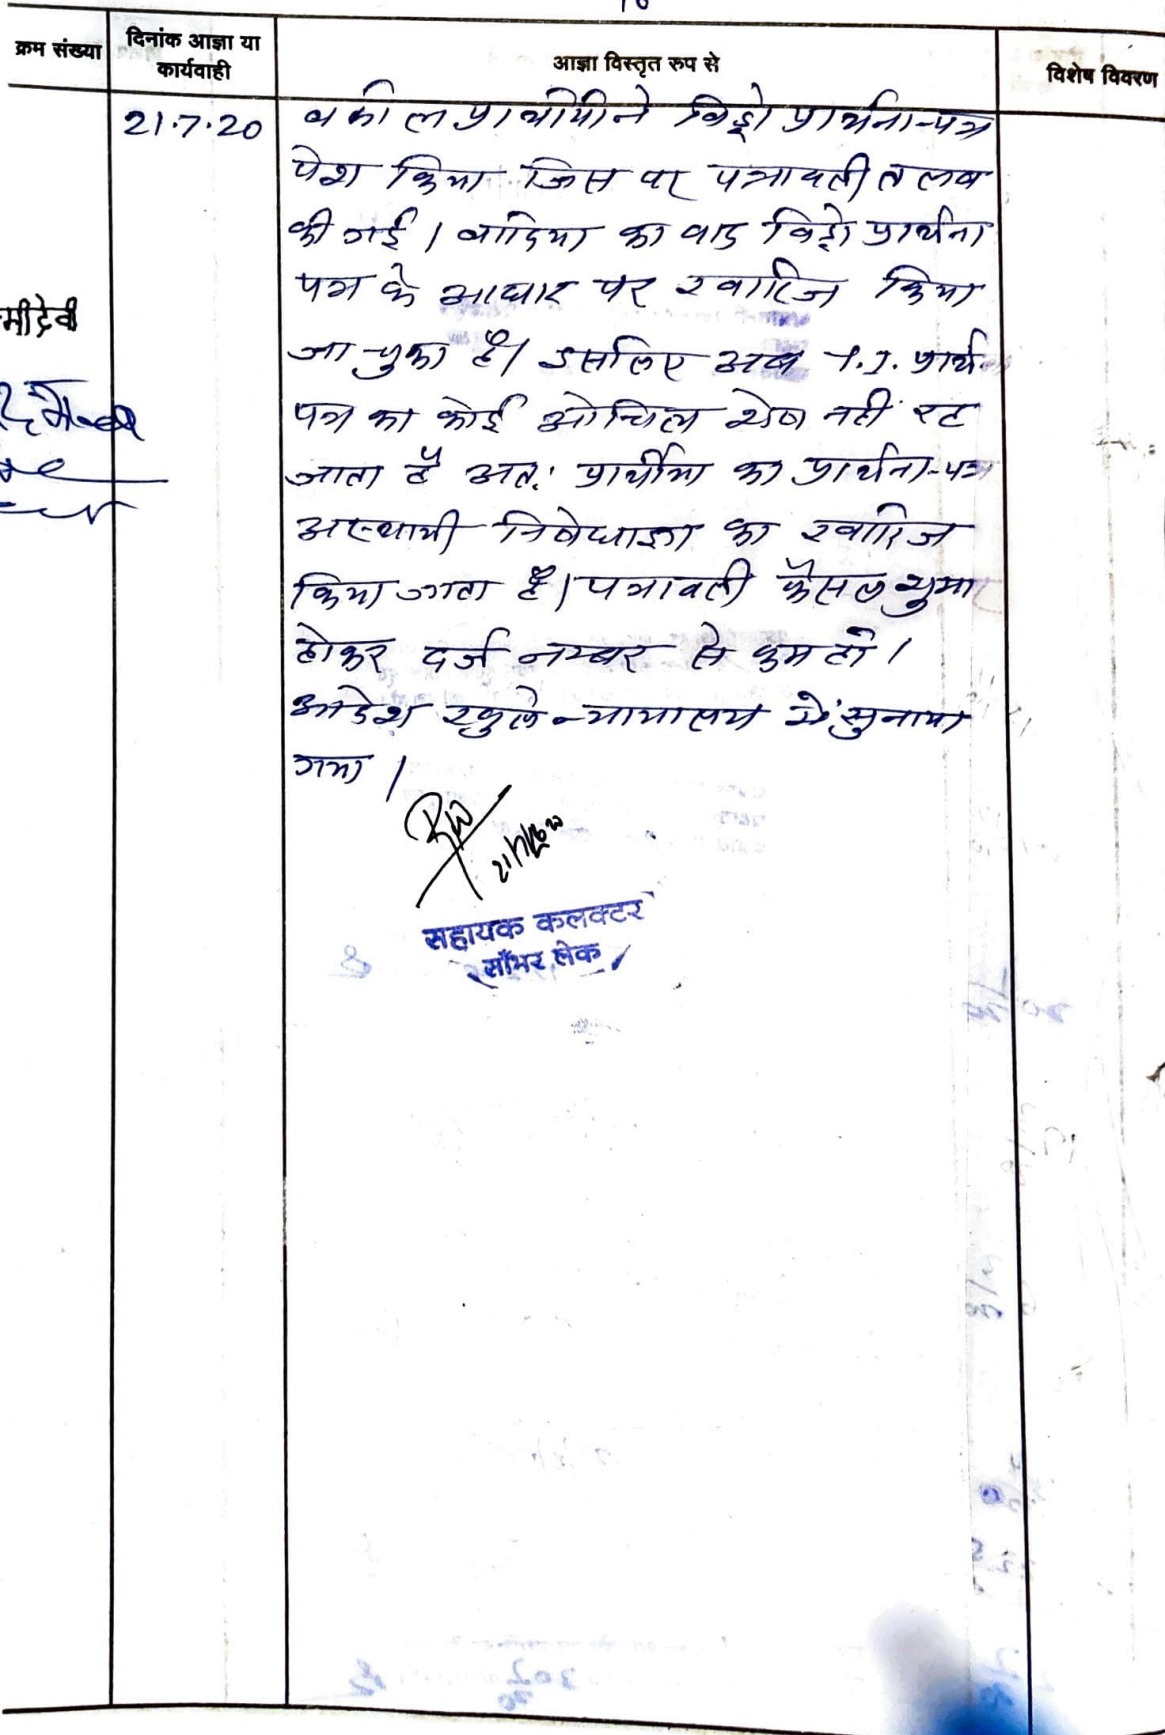 क्रम संख्या
दिनांक आज्ञा या
कार्यवाही
आज्ञा विस्तृत रुप से
विशेष विवरण
21.7.20
वकील प्रार्थीया ने विड्रो प्रार्थना-पत्र
पेश किया जिस पर पत्रावली तलब
की गई। वादिया का वाद विड्रो प्रार्थना
पत्र के आधार पर खारिज किया
जा चुका है। इसलिए अब T.I. प्रार्थ.
पत्र का कोई औचित्य शेष नहीं रह
जाता है अत: प्रार्थीया का प्रार्थना-पत्र
अस्थायी निषेधाज्ञा का खारिज
किया जाता है। पत्रावली फैसल शुमा
होकर दर्ज नम्बर से कम हो।
आदेश खुले न्यायालय में सुनाया
गया।
मीदेवी
21/7/2020
सहायक कलक्टर
साँभर लेक